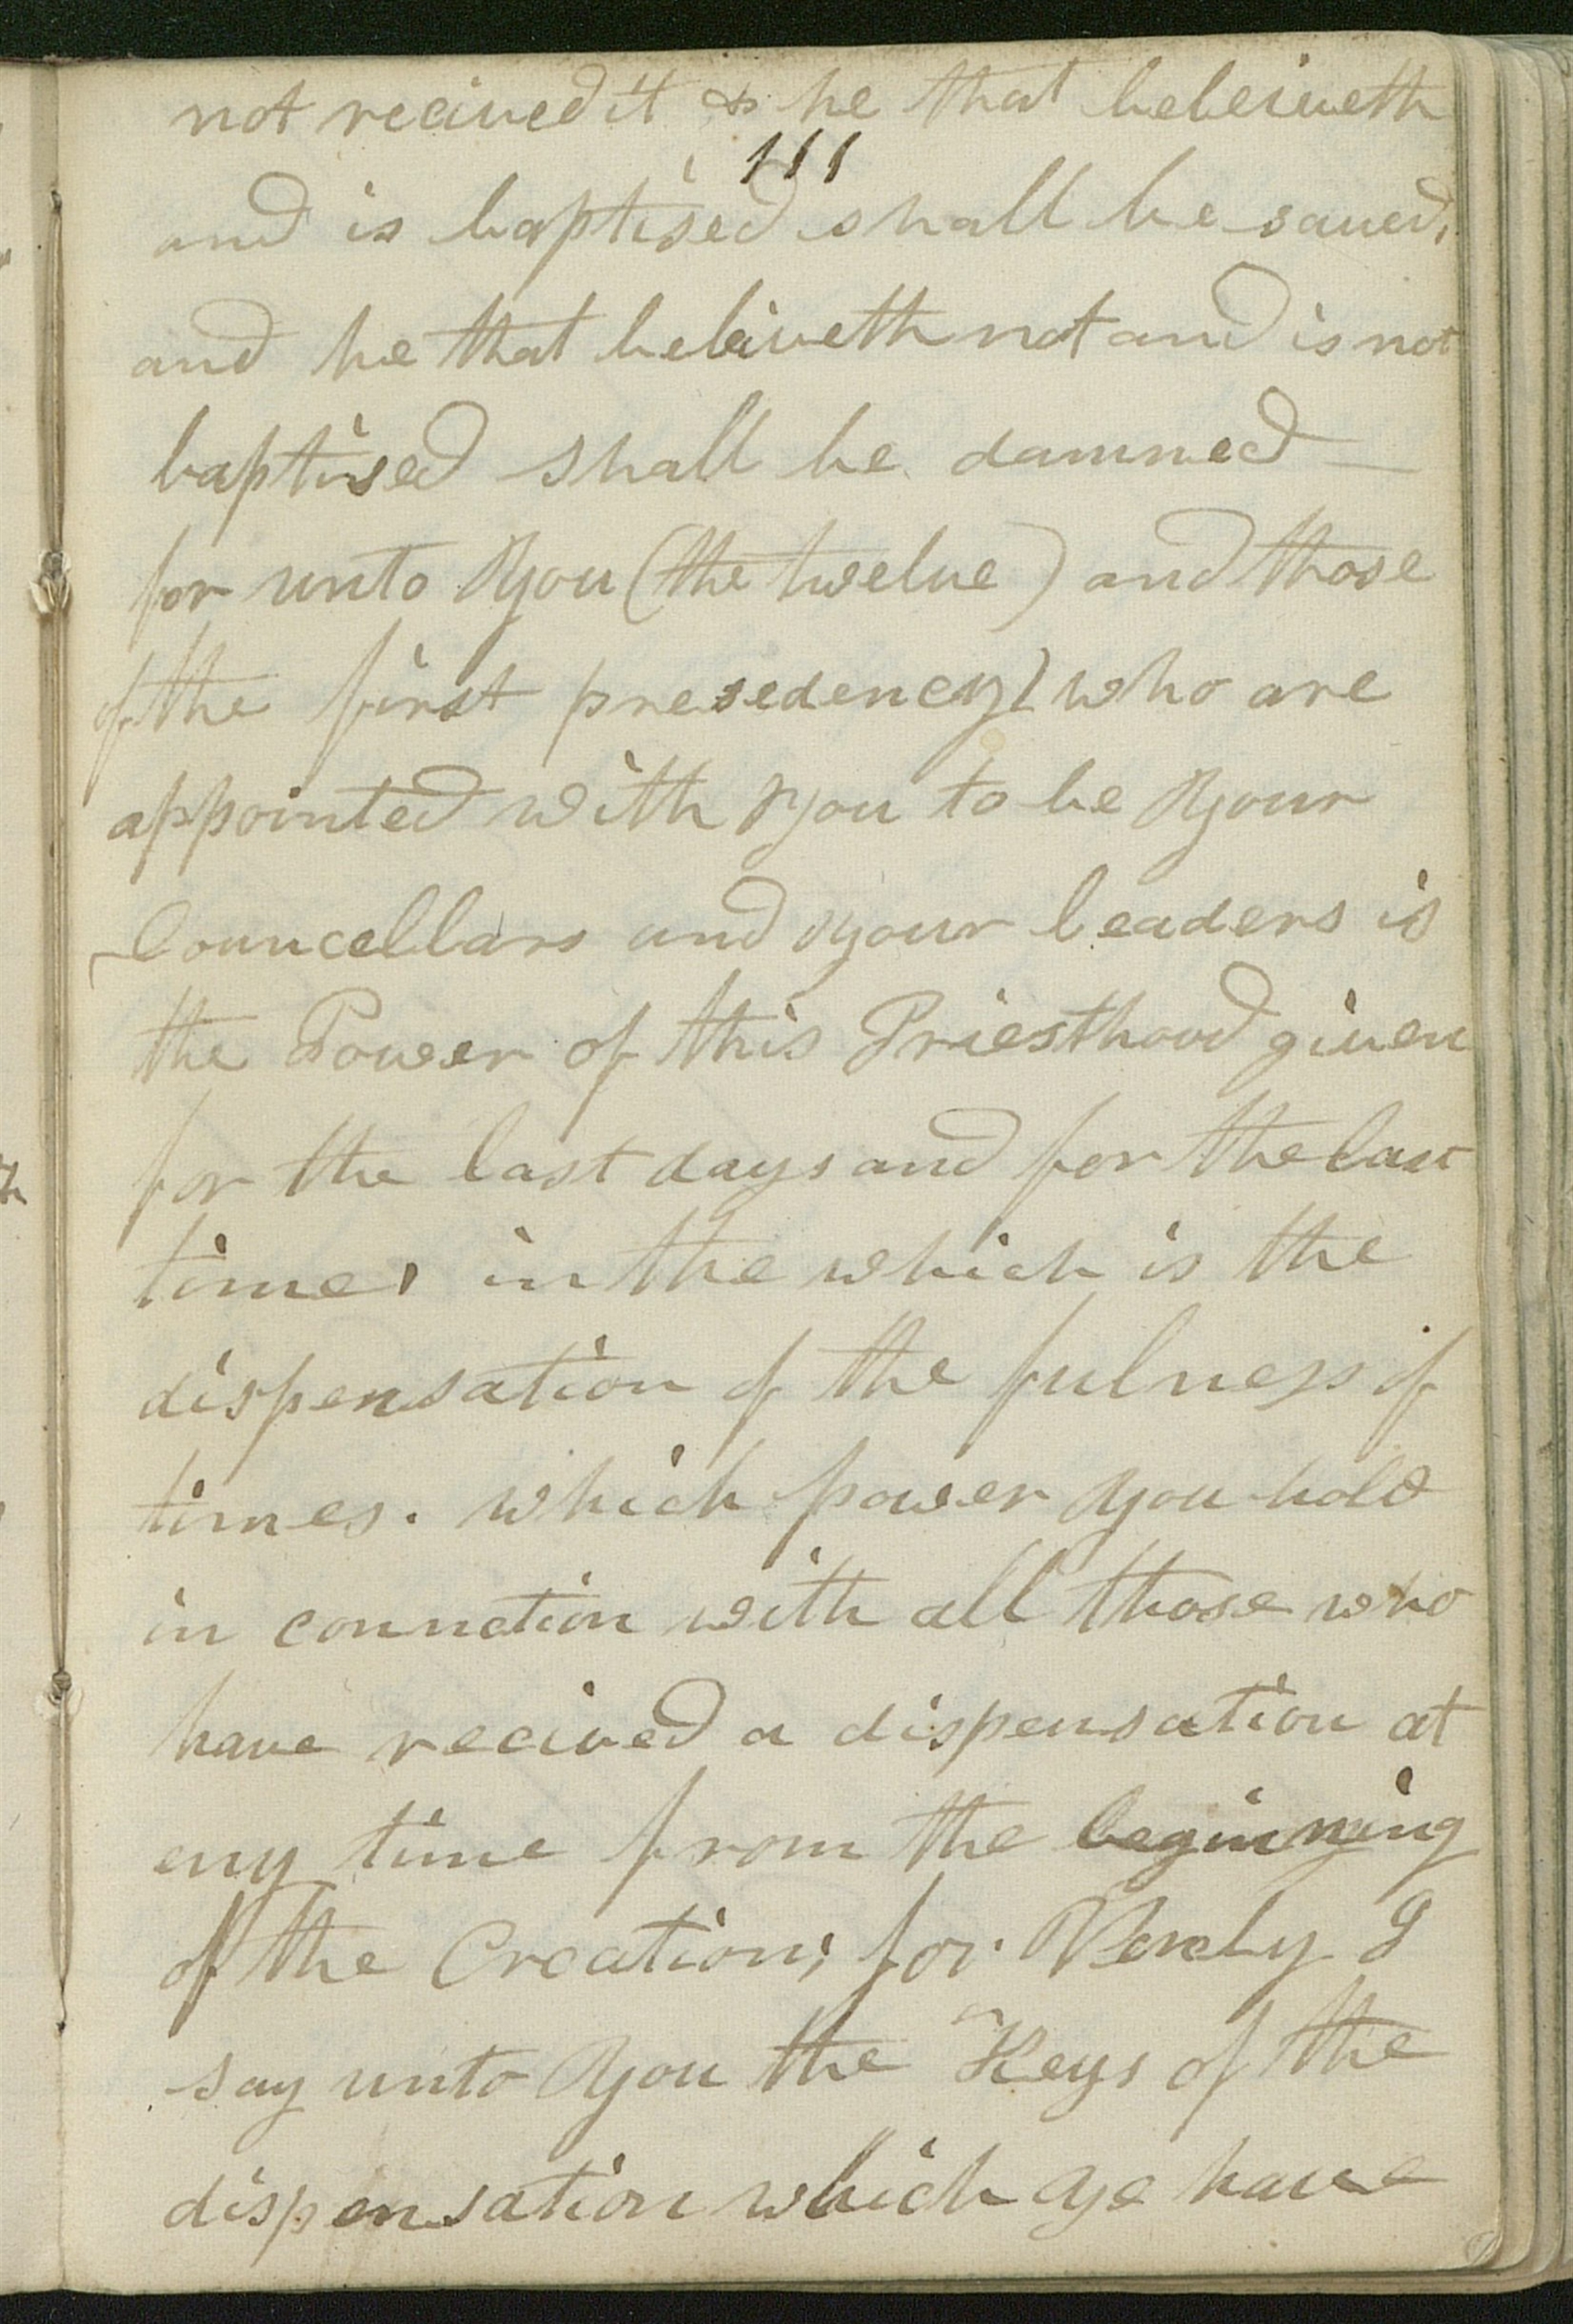 not recived it & he that beleiveth
111
and is baptised shall be saved,
and he that beleiveth not and is not
baptised shall be damned —
for unto you (the twelve) and those
of the first presedency) who are
appointed with you to be your
Councellars and your leaders is
the Power of this Priesthood given
for the last days and for the last
time, in the which is the
dispensation of the fulness of
times. which power you hold
in connction with all those who
have recived a dispensation at
eny time from the beginning
of the Creation; for Verely I
say unto you the Keys of the
dispensation which ye have